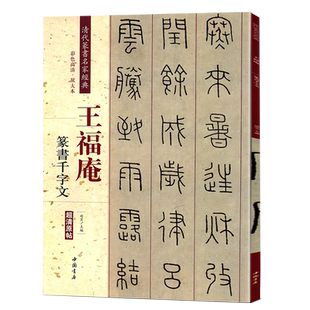 清代篆書名家經典
彩色高清·放大本
王福庵
篆書千字文
超清原帖
中國書店
寒來暑往秋收
閏餘成歲律呂
雲騰致雨露結